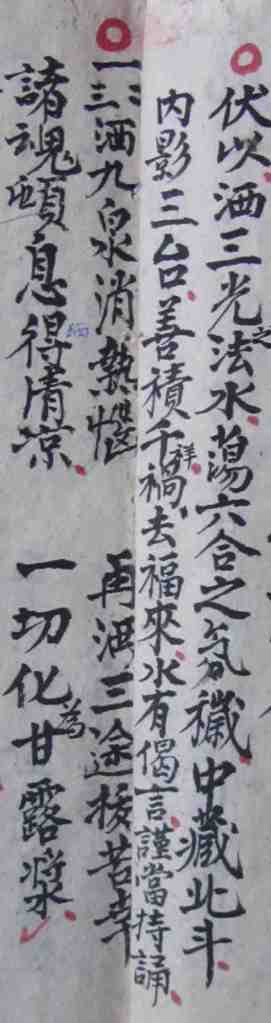 伏以洒三光之法水蕩六合之氛穢中藏北斗
内影三台善積千祥禍去福來水有偈言謹當持誦
一洒九泉消熱惱 再洒三途拔苦辛
三洒諸魂頓息得清凉 一切化為甘露漿